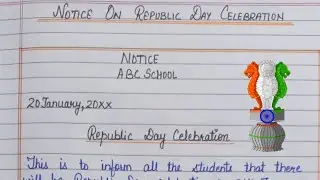 NOTICE ON REPUBLIC DAY CELEBRATION
NOTICE
ABC SCHOOL
20 January, 20xx
Republic Day Celebration
This is to inform all the students that there
will be Republic Day